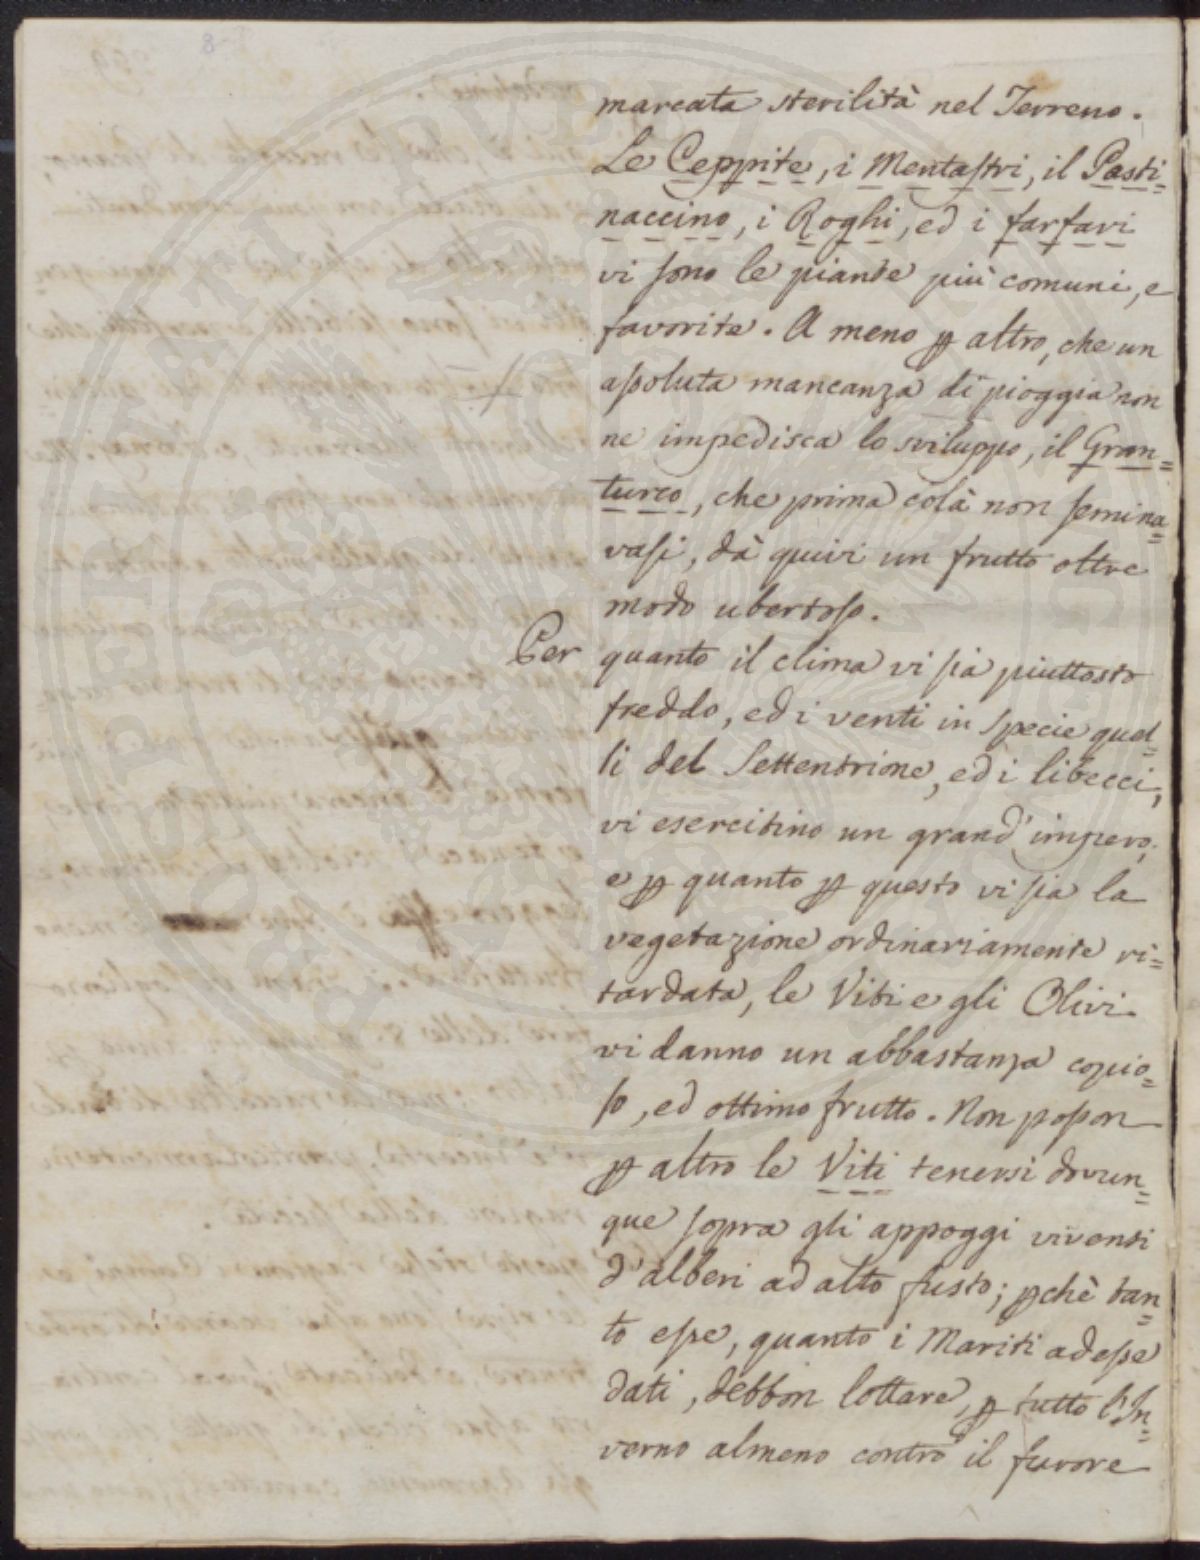 marcata sterilità nel Terreno.
Le Ceppite, i Mentastri, il Pasti=
naccino, i Roghi, ed i farfari
vi sono le piante più comuni, e
favorite. A meno p altro, che un
assoluta mancanza di pioggia non
ne impedisca lo sviluppo, il Gran=
turco, che prima colà non semina=
vasi, dà quivi un frutto oltre
modo ubertoso.
Per quanto il clima vi sia piuttosto
freddo, ed i venti in specie quel=
li del Settentrione, ed i libecci,
vi esercitino un grand'impero,
e p quanto p questo vi sia la
vegetazione ordinariamente ri=
tardata, le Viti e gli Olivi
vi danno un abbastanza copio=
so, ed ottimo frutto. Non posson
p altro le Viti tenersi dovun=
que sopra gli appoggi viventi
d'alberi ad alto fusto; pchè tan=
to esse, quanto i Mariti ad esse
dati, debbon lottare, p tutto l'In=
verno almeno contro il furore